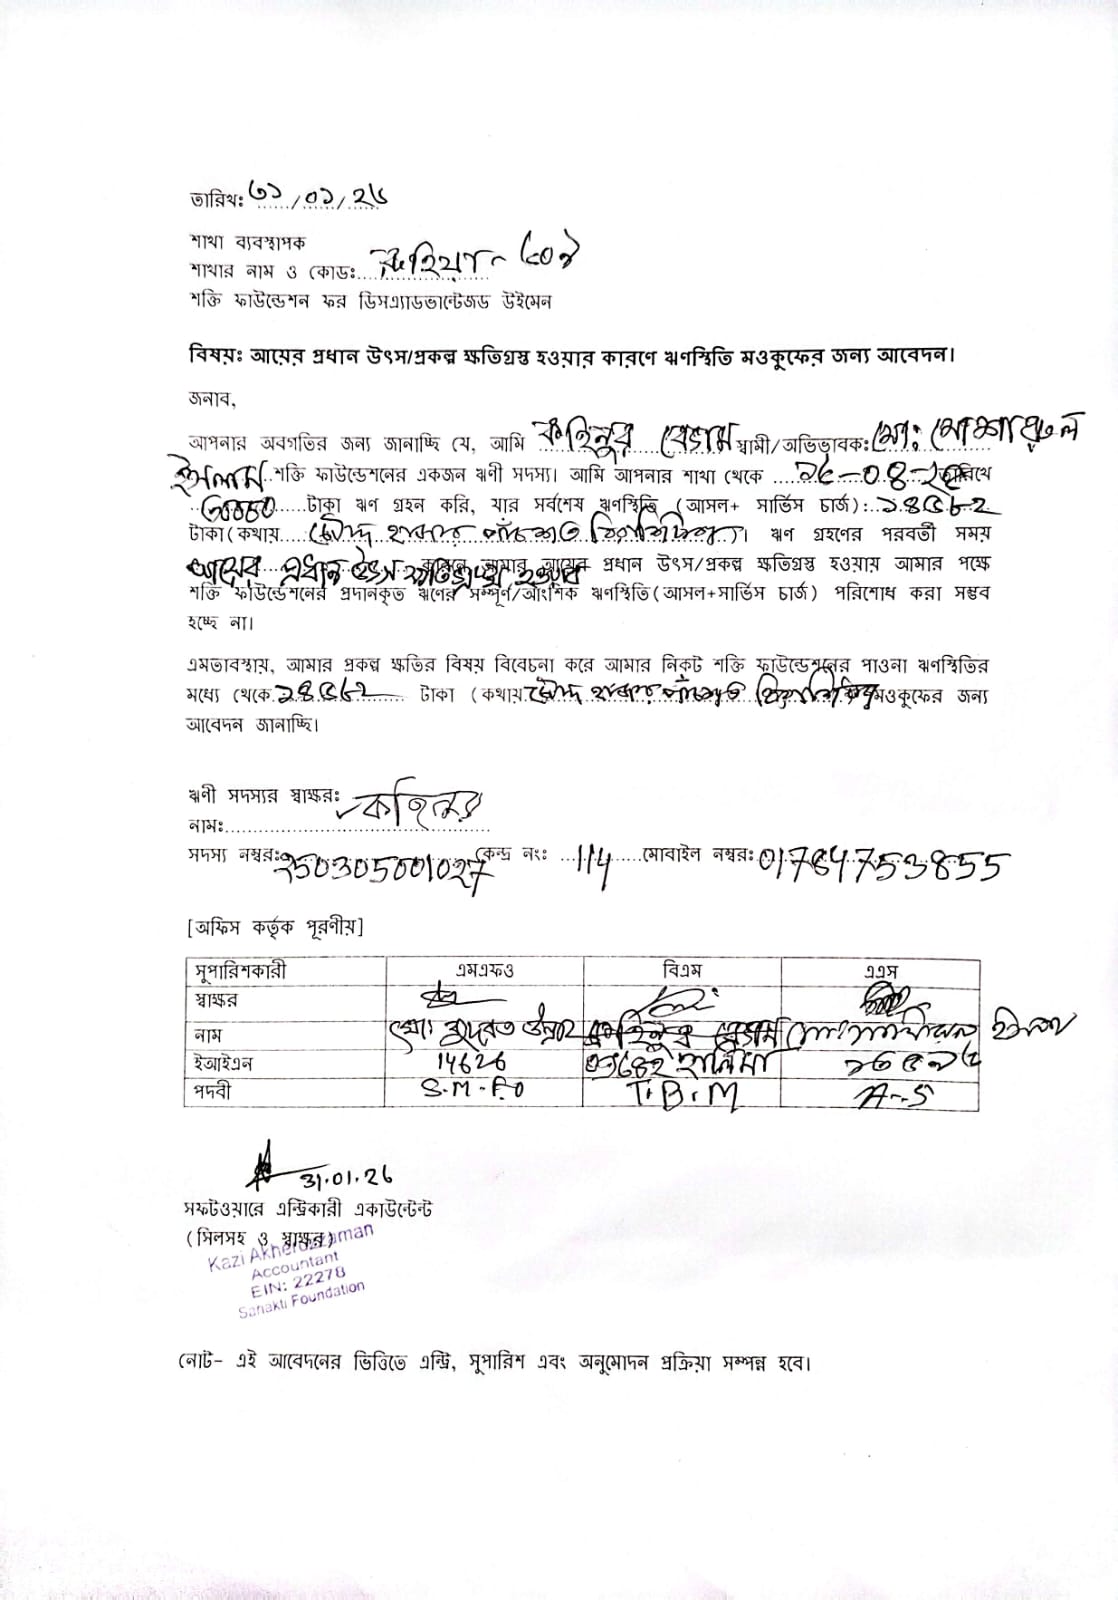 তারিখঃ ৩১/০১/২৬
শাখা ব্যবস্থাপক
শাখার নাম ও কোডঃ রুহিয়া - ৮০৯
শক্তি ফাউন্ডেশন ফর ডিসএ্যাডভান্টেজড উইমেন
বিষয়ঃ আয়ের প্রধান উৎস/প্রকল্প ক্ষতিগ্রস্ত হওয়ার কারণে ঋণস্থিতি মওকুফের জন্য আবেদন।
জনাব,
আপনার অবগতির জন্য জানাচ্ছি যে, আমি কহিনুর বেগম স্বামী/অভিভাবকঃ মোঃ
ইসলাম শক্তি ফাউন্ডেশনের একজন ঋণী সদস্য। আমি আপনার শাখা থেকে তারিখে
৩০০০০ টাকা ঋণ গ্রহন করি, যার সর্বশেষ ঋণস্থিতি (আসল+ সার্ভিস চার্জ): ১৪৫৮২
টাকা(কথায় চৌদ্দ হাজার পাঁচশত বিরাশি টাকা)। ঋণ গ্রহণের পরবর্তী সময়
আয়ের প্রধান উৎস ক্ষতিগ্রস্থ হওয়ায় কারনে আমার আয়ের প্রধান উৎস/প্রকল্প ক্ষতিগ্রস্ত হওয়ায় আমার পক্ষে
শক্তি ফাউন্ডেশনের প্রদানকৃত ঋণের সম্পূর্ণ/আংশিক ঋণস্থিতি(আসল+সার্ভিস চার্জ) পরিশোধ করা সম্ভব
হচ্ছে না।
এমতাবস্থায়, আমার প্রকল্প ক্ষতির বিষয় বিবেচনা করে আমার নিকট শক্তি ফাউন্ডেশনের পাওনা ঋণস্থিতির
মধ্যে থেকে ১৪৫৮২ টাকা (কথায় চৌদ্দ হাজার পাঁচশত মওকুফের জন্য
আবেদন জানাচ্ছি।
ঋণী সদস্যর স্বাক্ষরঃ কহিনুর
নামঃ
সদস্য নম্বরঃ 250305001027 কেন্দ্র নংঃ 114 মোবাইল নম্বরঃ 01764753855
[অফিস কর্তৃক পূরণীয়]
সুপারিশকারী এমএফও বিএম এএস
স্বাক্ষর
নাম মোঃ
ইআইএন 14626
পদবী S.M-F.O T.B.M A-S
31.01.26
সফটওয়ারে এন্ট্রিকারী একাউন্টেন্ট
(সিলসহ ও স্বাক্ষর)
Kazi
Accountant
EIN: 22278
Shakti Foundation
নোট- এই আবেদনের ভিত্তিতে এন্ট্রি, সুপারিশ এবং অনুমোদন প্রক্রিয়া সম্পন্ন হবে।